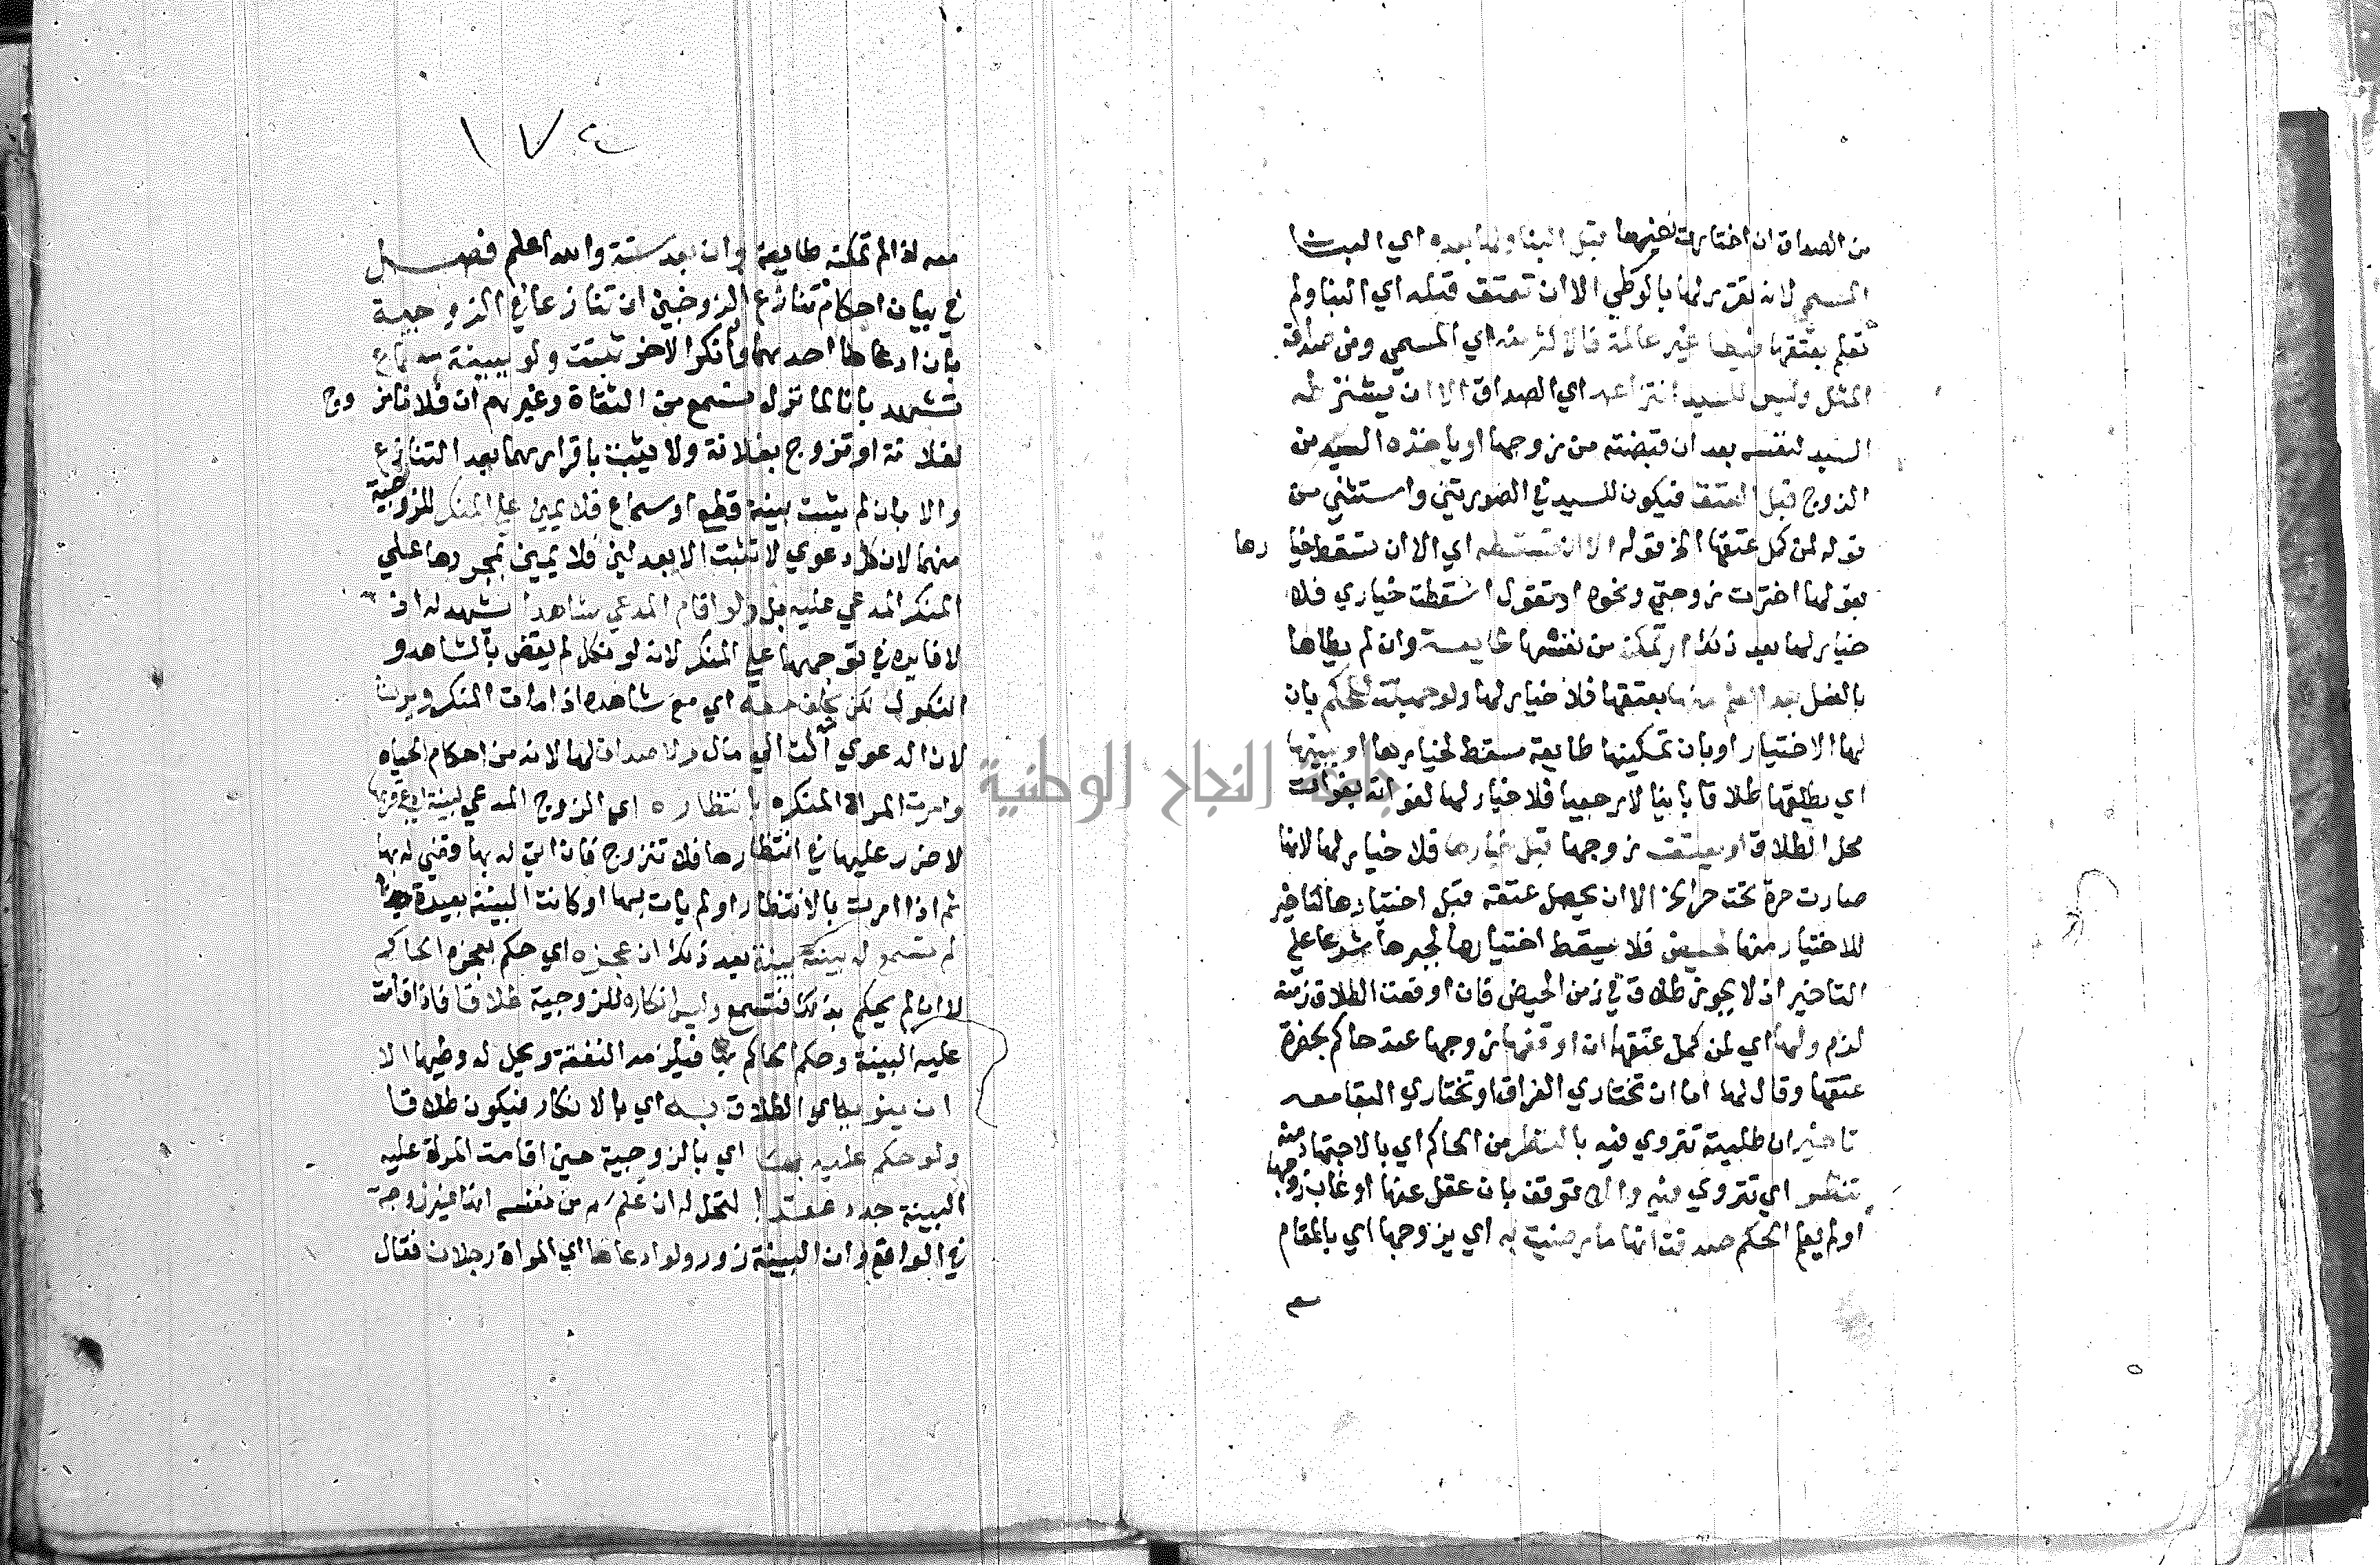 من الصداق ان اختارت نفسها قبل البنا ولها بعده اي البنا
المسمي لانه تقرر لها بالوطي الا ان تعتق قبله اي البنا ولم
تعلم بعتقها فيها غير عالمة فالاكثر منه اي المسمي ومن صداق
المثل وليس للسيد انتزاعه اي الصداق الا ان يشترطه
السيد لنفسه بعد ان قبضته من زوجها او ياخذه السيد من
الزوج قبل العتق فيكون للسيد في الصورتين واستثني من
قوله لمن كمل عتقها الخ قوله الا ان تسقطه اي الا ان تسقط خيارها
بقولها اخترت زوجي ونحوه او تقول اسقطت خياري فلا
خيار لها بعد ذلك او تمكن من نفسها طايعة وان لم يطاها
بالفعل بعد العلم منها بعتقها فلا خيار لها ولو جهلت الحكم بان
لها الاختيار او بان تمكينها طايعة مسقط لخيارها او يبينها
اي يطلقها طلاقا باينا لا رجعيا فلا خيار لها لفواته بفوات
محل الطلاق او يعتق زوجها قبل خيارها فلا خيار لها لانها
صارت حرة تحت حر الخ الا ان يحصل عتقه قبل اختيارها لتاخير
للاختيار منها لحيض فلا يسقط اختيارها لجبرها شرعا علي
التاخير اذ لا يجوز طلاق في زمن الحيض فان اوقعت الطلاق زمنه
لزم ولها اي لمن كمل عتقها ان اوقفها زوجها عند حاكم بحضرة
عتقها وقال لها اما ان تختاري الفراق او تختاري البقا معه
تاخير ان طلبته تتروي فيه بالنظر من الحاكم اي بالاجتهاد منه
تنظر اي تتروي فيه والا توقف بان غفل عنها او غاب زوجها
او لم يعلم الحكم صدقت انها ما رضيت به اي بزوجها اي بالمقام
مع
١٧٤
معه اذا لم تمكنه طايعة وان بعد سنة والله اعلم فصل
في بيان احكام تنازع الزوجين ان تنازعا في الزوجية
بان ادعاها احدهما وانكر الاخر ثبتت ولو ببينة سماع
تشهد بانا لم نزل نسمع من الثقاة وغيرهم ان فلانا زوج
لفلانة او تزوج بفلانة ولا يثبت باقرارهما بعد التنازع
والا بان لم يثبت بينة قطع او سماع فلا يمين علي المنكر للزوجية
منهما لان كل دعوي لا تثبت الا بعدلين فلا يمين بمجردها علي
المنكر المدعي عليه بل ولو اقام المدعي شاهدا يشهد له اذ
لا فايدة في توجهها علي المنكر لانه لو نكل لم يقض بالشاهد و
النكول لكن يحلف معه اي مع شاهده اذا مات المنكر ويرث
لان الدعوي آلت الي مال ولا صداق لها لانه من احكام الحياه
وامرت المراة المنكره بانتظاره اي الزوج المدعي لبينة ادعي قربها
لا ضرر عليها في انتظارها فلا تتزوج فان اتي له بها وقضي له بها
ثم اذا امرت بالانتظار ولم يات بها او كانت البينة بعيدة
لم تسمع له بينته بينة بعد ذلك ان عجزه اي حكم بعجزه الحاكم
لا ان لم يحكم بذلك فتسمع وليس انكاره للزوجية طلاقا فاذا اقامت
عليه البينة وحكم الحاكم بها فيلزمه النفقة ويحل له وطيها الا
ان ينوي اي الطلاق به اي بالانكار فيكون طلاقا
ولو حكم عليه بها اي بالزوجية حين اقامت المراة عليه
البينة جدد عقدا لتحل له ان علم من نفسه انها غير زوجة
في الواقع وان البينة زور ولو ادعاها اي المراة رجلان فقال